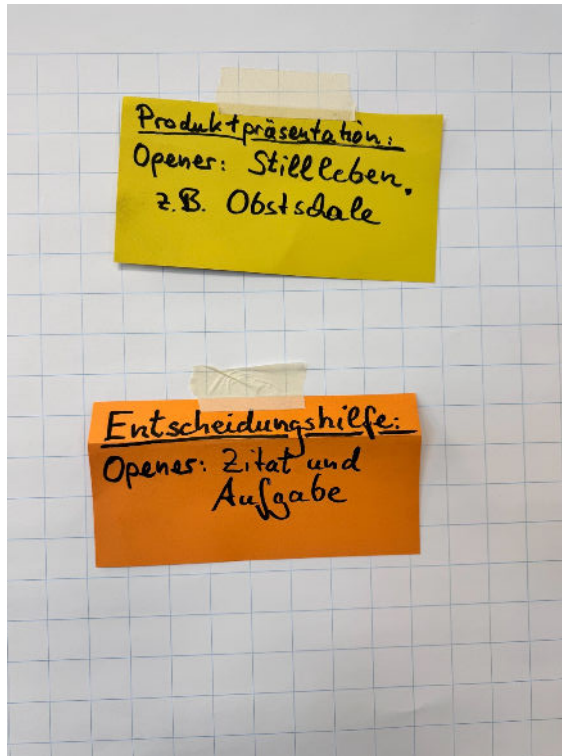 Produktpräsentation:
Opener: Stillleben,
z.B. Obstschale
Entscheidungshilfe:
Opener: Zitat und
Aufgabe